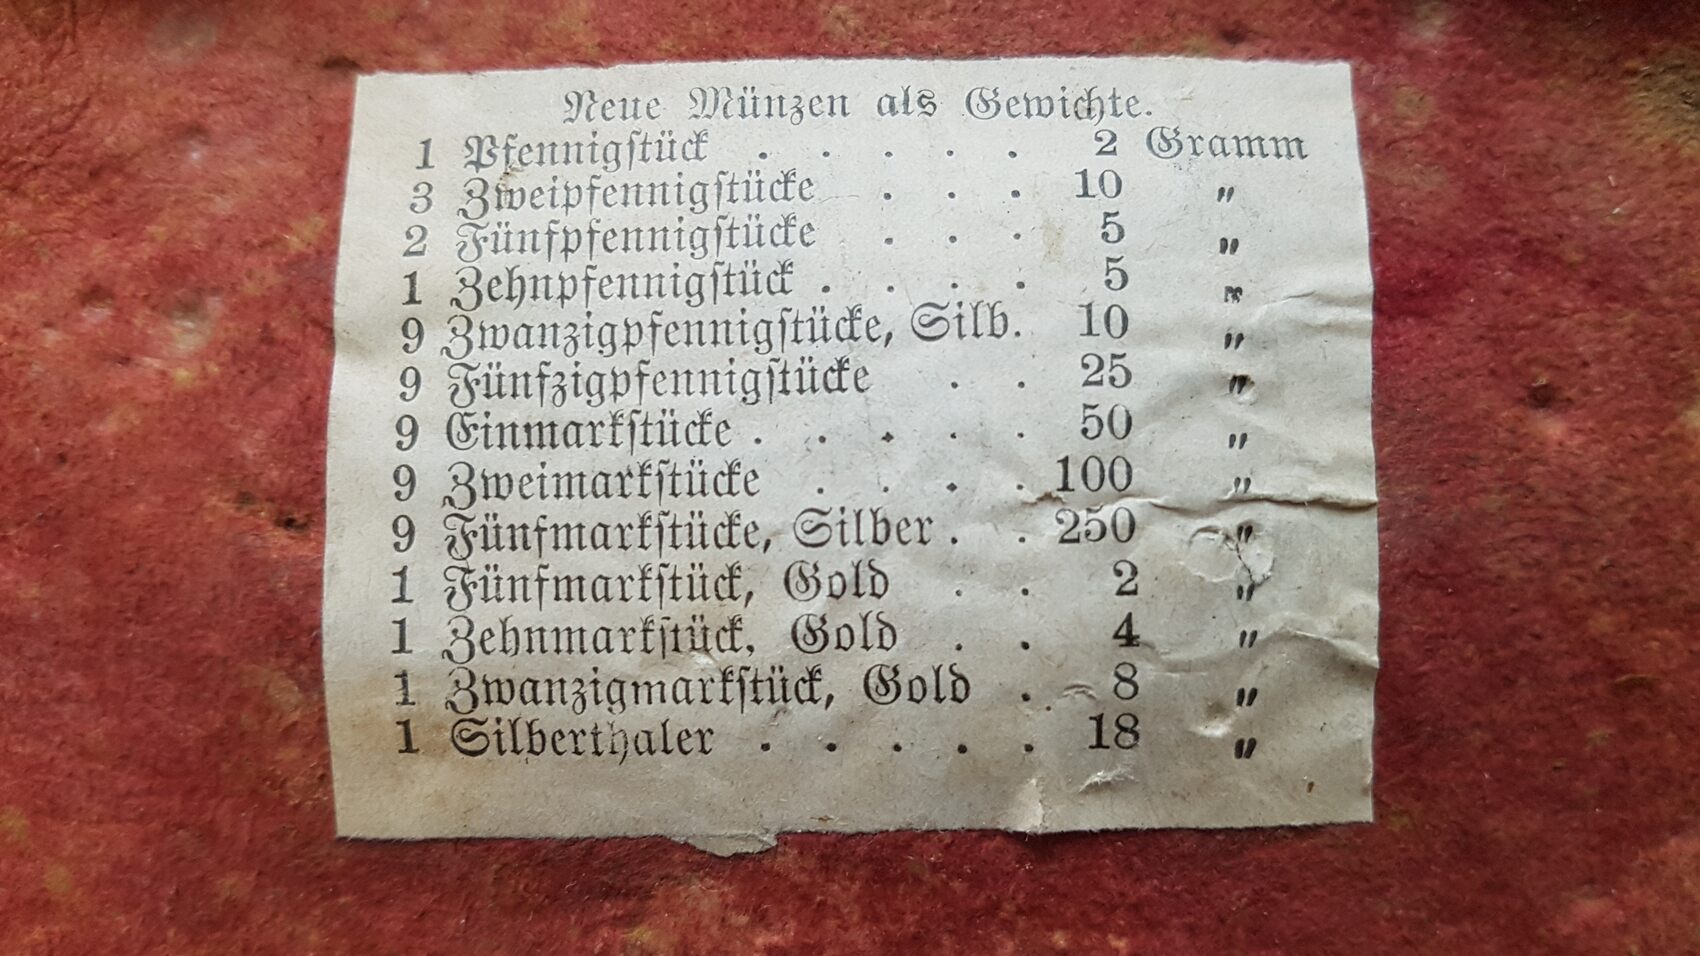 Neue Münzen als Gewichte.
1 Pfennigſtück . . . . . 2 Gramm
3 Zweipfennigſtücke . . . 10 "
2 Fünfpfennigſtücke . . . 5 "
1 Zehnpfennigſtück . . . . 5 "
9 Zwanzigpfennigſtücke, Silb. 10 "
9 Fünfzigpfennigſtücke . . 25 "
9 Einmarkſtücke . . . . . 50 "
9 Zweimarkſtücke . . . . 100 "
9 Fünfmarkſtücke, Silber . . 250 "
1 Fünfmarkſtück, Gold . . 2 "
1 Zehnmarkſtück, Gold . . 4 "
1 Zwanzigmarkſtück, Gold . . 8 "
1 Silberthaler . . . . . 18 "